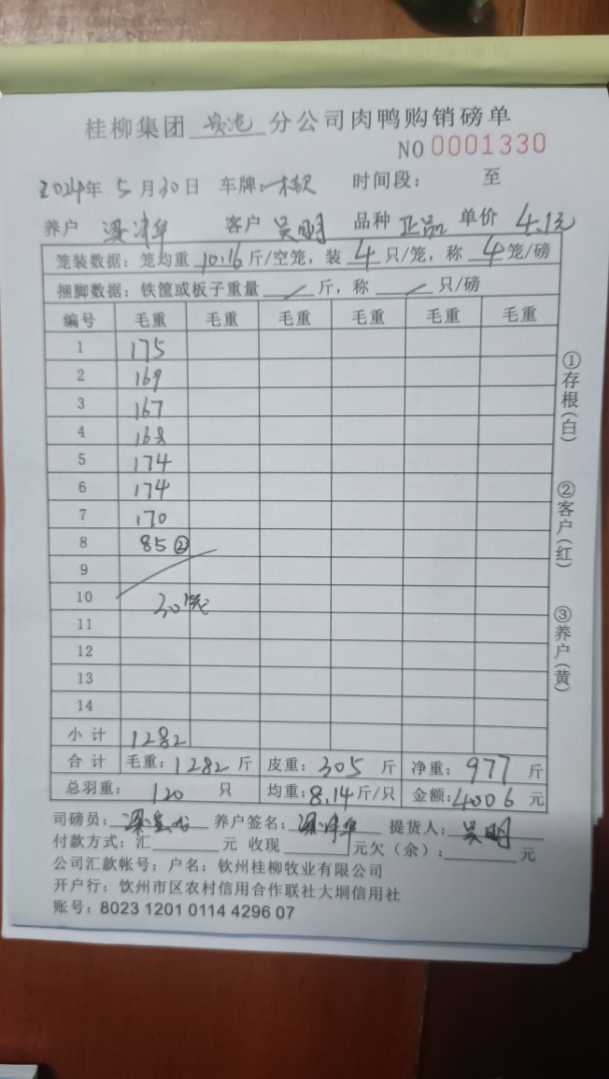 桂柳集团 分公司肉鸭购销磅单
NO 0001330
2024年 5月30日 车牌: 时间段: 至
养户 客户 吴明 品种 正品 单价 4.1元
笼装数据: 笼均重 10.16 斤/空笼, 装 4 只/笼, 称 4 笼/磅
捆脚数据: 铁筐或板子重量 / 斤, 称 / 只/磅
编号 毛重 毛重 毛重 毛重 毛重 毛重
1 175
2 169
3 167
4 168
5 174
6 174
7 170
8 85②
9
10 30笼
11
12
13
14
小计 1282
合计 毛重: 1282 斤 皮重: 305 斤 净重: 977 斤
总羽重: 120 只 均重: 8.14 斤/只 金额: 4006 元
司磅员: 养户签名: 提货人: 吴明
付款方式: 汇 元 收现 元欠(余): 元
公司汇款帐号: 户名: 钦州桂柳牧业有限公司
开户行: 钦州市区农村信用合作联社大垌信用社
账号: 8023 1201 0114 4296 07
①存根(白)
②客户(红)
③养户(黄)